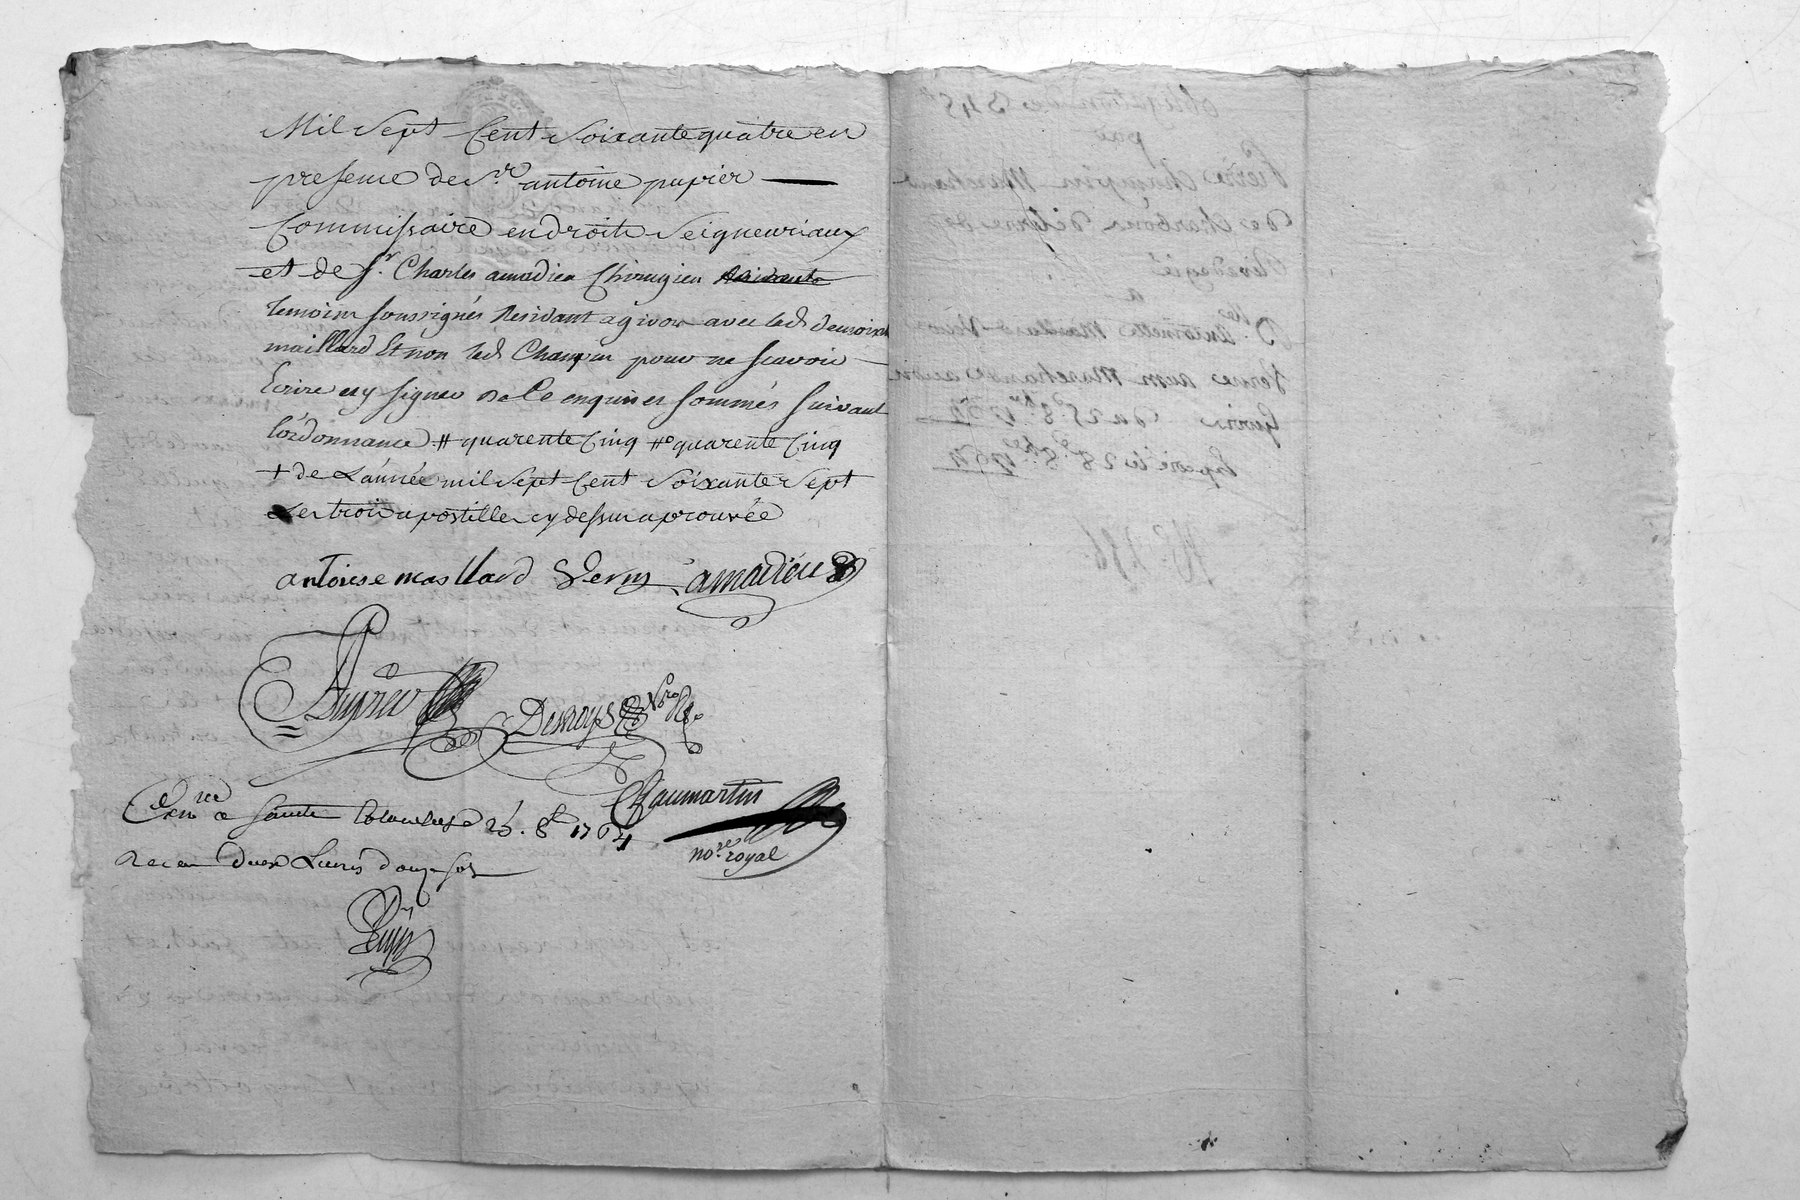 Mil Sept Cent Soixante quatre en
presence de Sr. antoine pupier
Commissaire en droits Seigneuriaux
et de Sr. Charles amadieu Chirugien
temoins soussignés Residant a givors avec lad. demoiselle
maillard Et non led. Champin pour ne scavoir
Ecrire ny signer de Ce enquis et sommés suivant
l'ordonnance # quarente Cinq # quarente Cinq
+ de L'année mil Sept Cent Soixante Sept
Les trois apostilles cy dessus aprouvée
antoinete maillard Verny amadieu
Pupier Desroys No.re R.
Chaumartin
Con.lé a Sainte Colombe le 26. 8bre 1764
no.re royal
Receu deux Livres douze sols
obligation de 345#
par
Pierre Champin Marchand
de Charbons de terre de
Rivedegié
a
D.lle Antoinette Maillard Veuve
Verny Marchand a
Givors du 25e. 8bre 1764
Expedié le 28e 8bre 1764